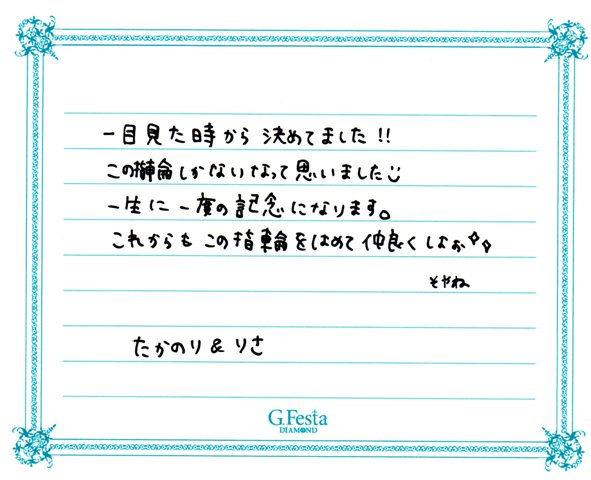 一目見た時から決めてました!!
この指輪しかないなって思いました
一生に一度の記念になります。
これからもこの指輪をはめて仲良くしよぉ
そやね
たかのり&りさ
G.Festa
DIAMOND